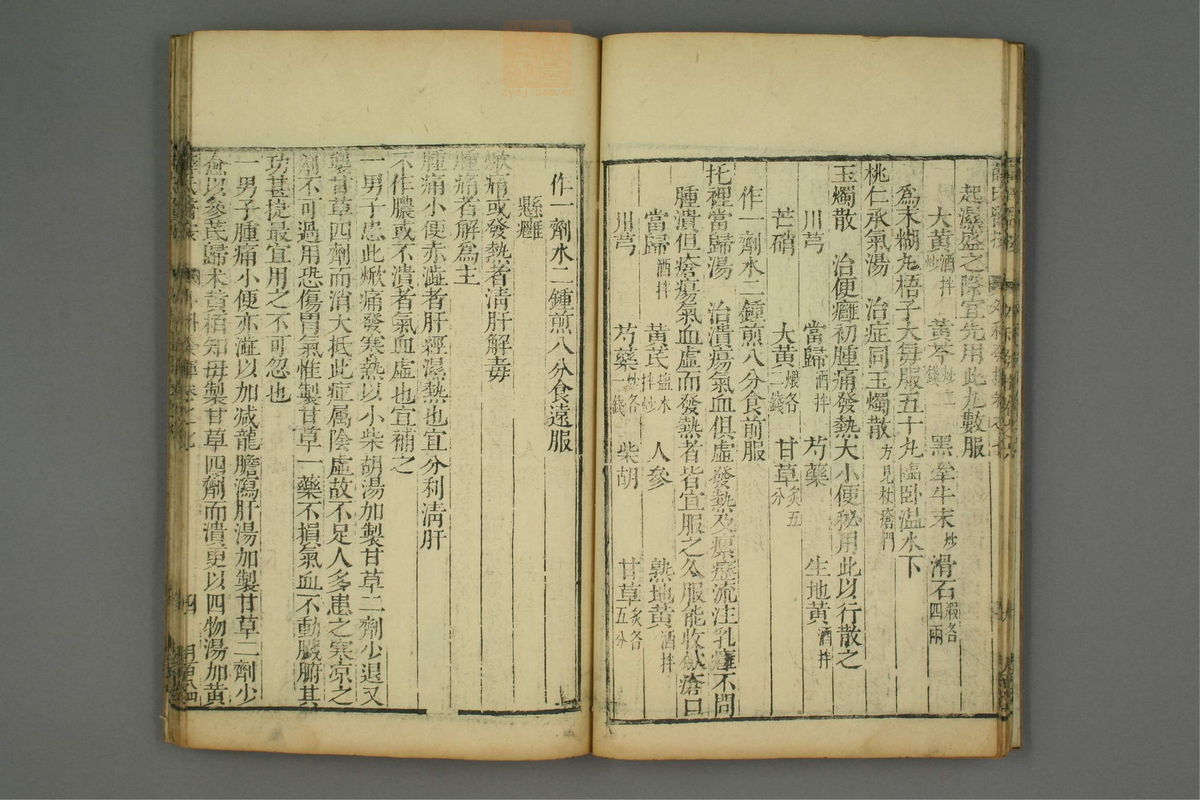 起濕盛之際宜先用此丸數服
大黄酒拌炒 黄芩炒二錢 黑牽牛末炒 滑石煆各四兩
爲末糊丸梧子大每服五十丸臨卧温水下
桃仁承氣湯 治症同玉燭散方見杜瘡門
玉燭散 治便癰初腫痛發熱大小便秘用此以行散之
川芎 當歸酒拌 芍藥 生地黄酒拌
芒硝 大黄煨各二錢 甘草炙五分
作一劑水二鍾煎八分食前服
托裡當歸湯 治潰瘍氣血俱虛發熱及瘰癧流注乳癰不問
腫潰但瘡瘍氣血虛而發熱者皆宜服之久服能收斂瘡口
當歸酒拌 黄芪鹽水拌炒 人參 熟地黄酒拌
川芎 芍藥炒各一錢 柴胡 甘草炙各五分
作一劑水二鍾煎八分食遠服
懸癰
焮痛或發熱者淸肝解毒
腫痛者解爲主
腫痛小便赤澁者肝經濕熱也宜分利淸肝
不作膿或不潰者氣血虛也宜補之
一男子患此焮痛發寒熱以小柴胡湯加製甘草二劑少退又
製甘草四劑而消大抵此症属陰虛故不足人多患之寒凉之
劑不可過用恐傷胃氣惟製甘草一藥不損氣血不動臟腑其
功甚捷最宜用之不可忽也
一男子腫痛小便亦澁以加减龍膽瀉肝湯加製甘草二劑少
愈以參芪歸术黄栢知母製甘草四劑而潰更以四物湯加黄